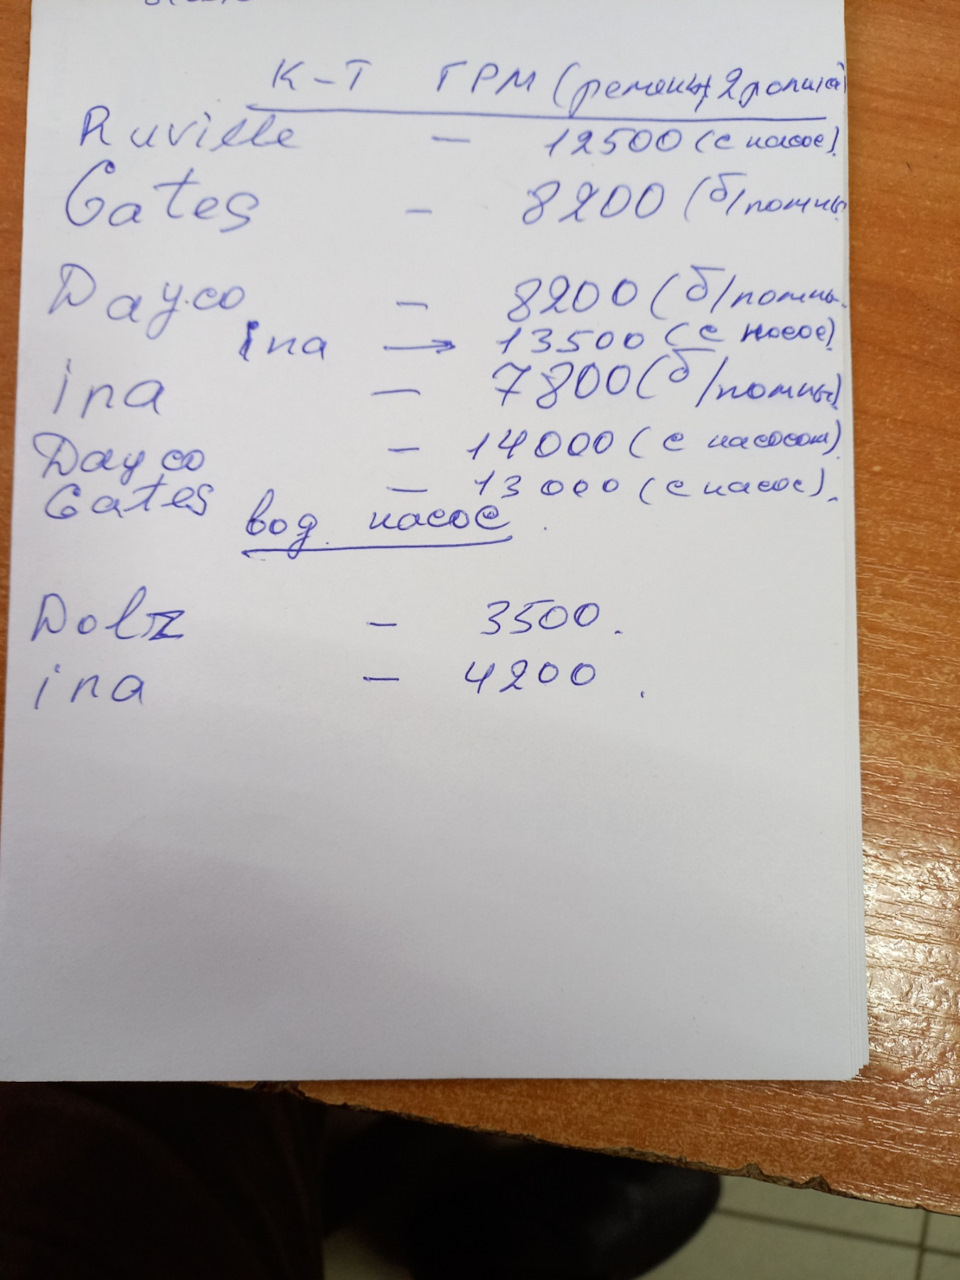 К-Т ГРМ (ремень+2ролика)
Ruville - 12500 (с насос).
Gates - 8200 (б/помпы
Dayco - 8200 (б/помпы.
ina → 13500 (с насос)
ina - 7800 (б/помпы)
Dayco - 14000 (с насосом).
Gates - 13000 (с насос).
вод. насос.
Dolz - 3500.
ina - 4200.